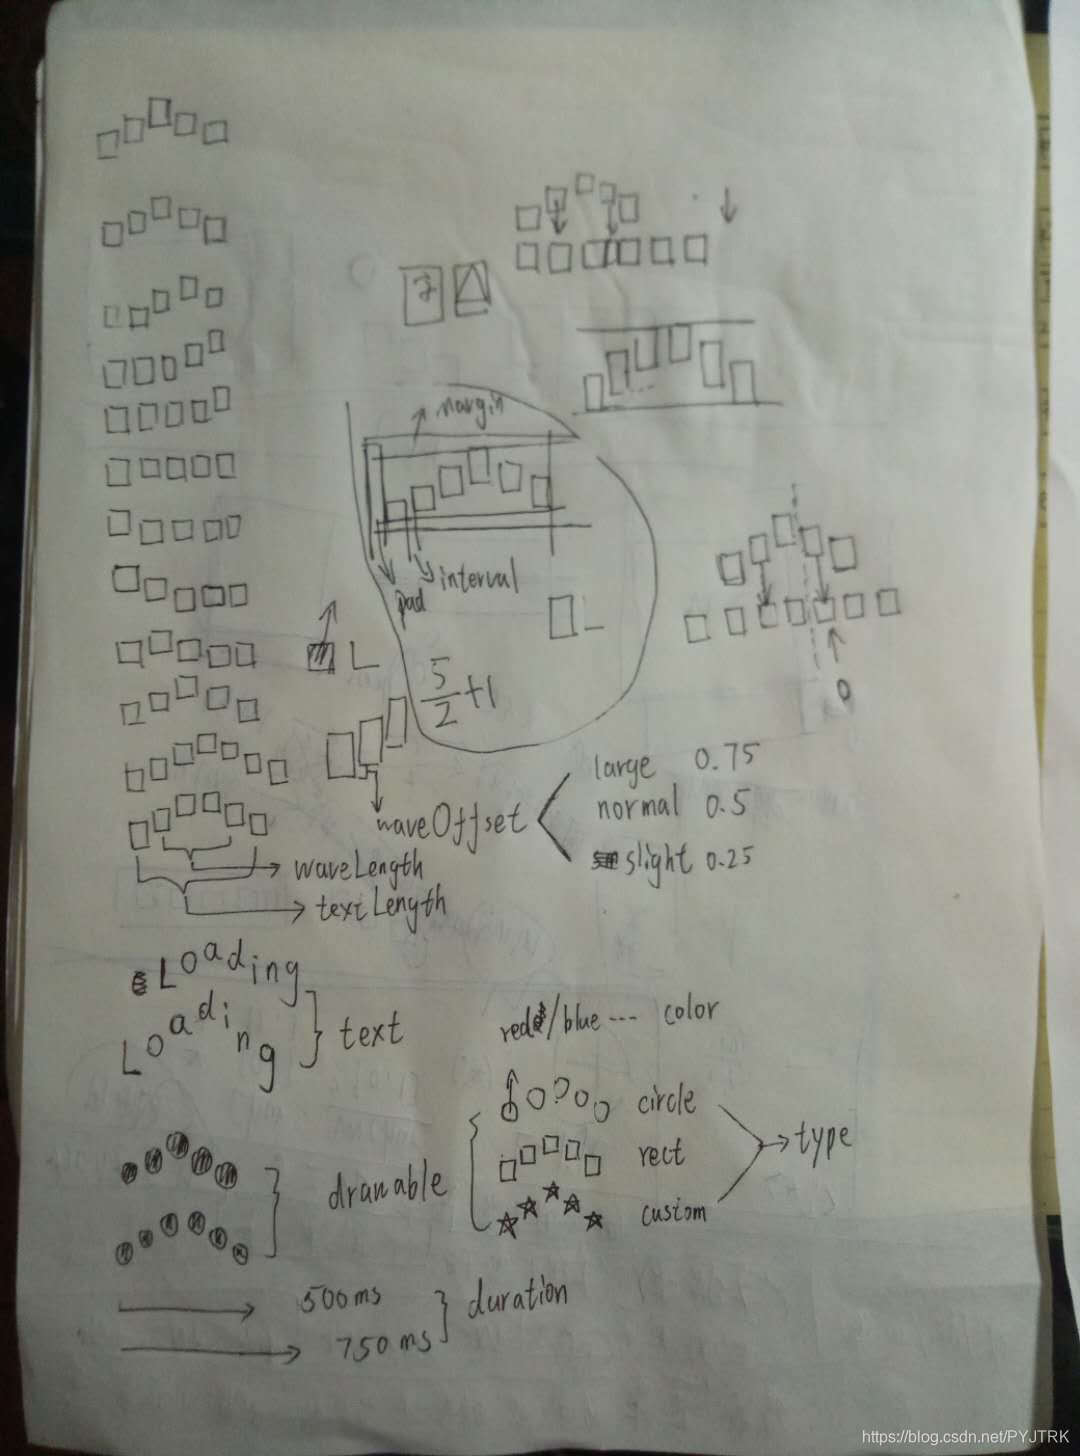 子
margin
interval
pad
L
L
5/2+1
0
waveOffset
large 0.75
normal 0.5
slight 0.25
waveLength
textLength
Loading
Loading
text
red/blue --- color
circle
rect
custom
type
drawable
500ms
750ms
duration
https://blog.csdn.net/PYJTRK